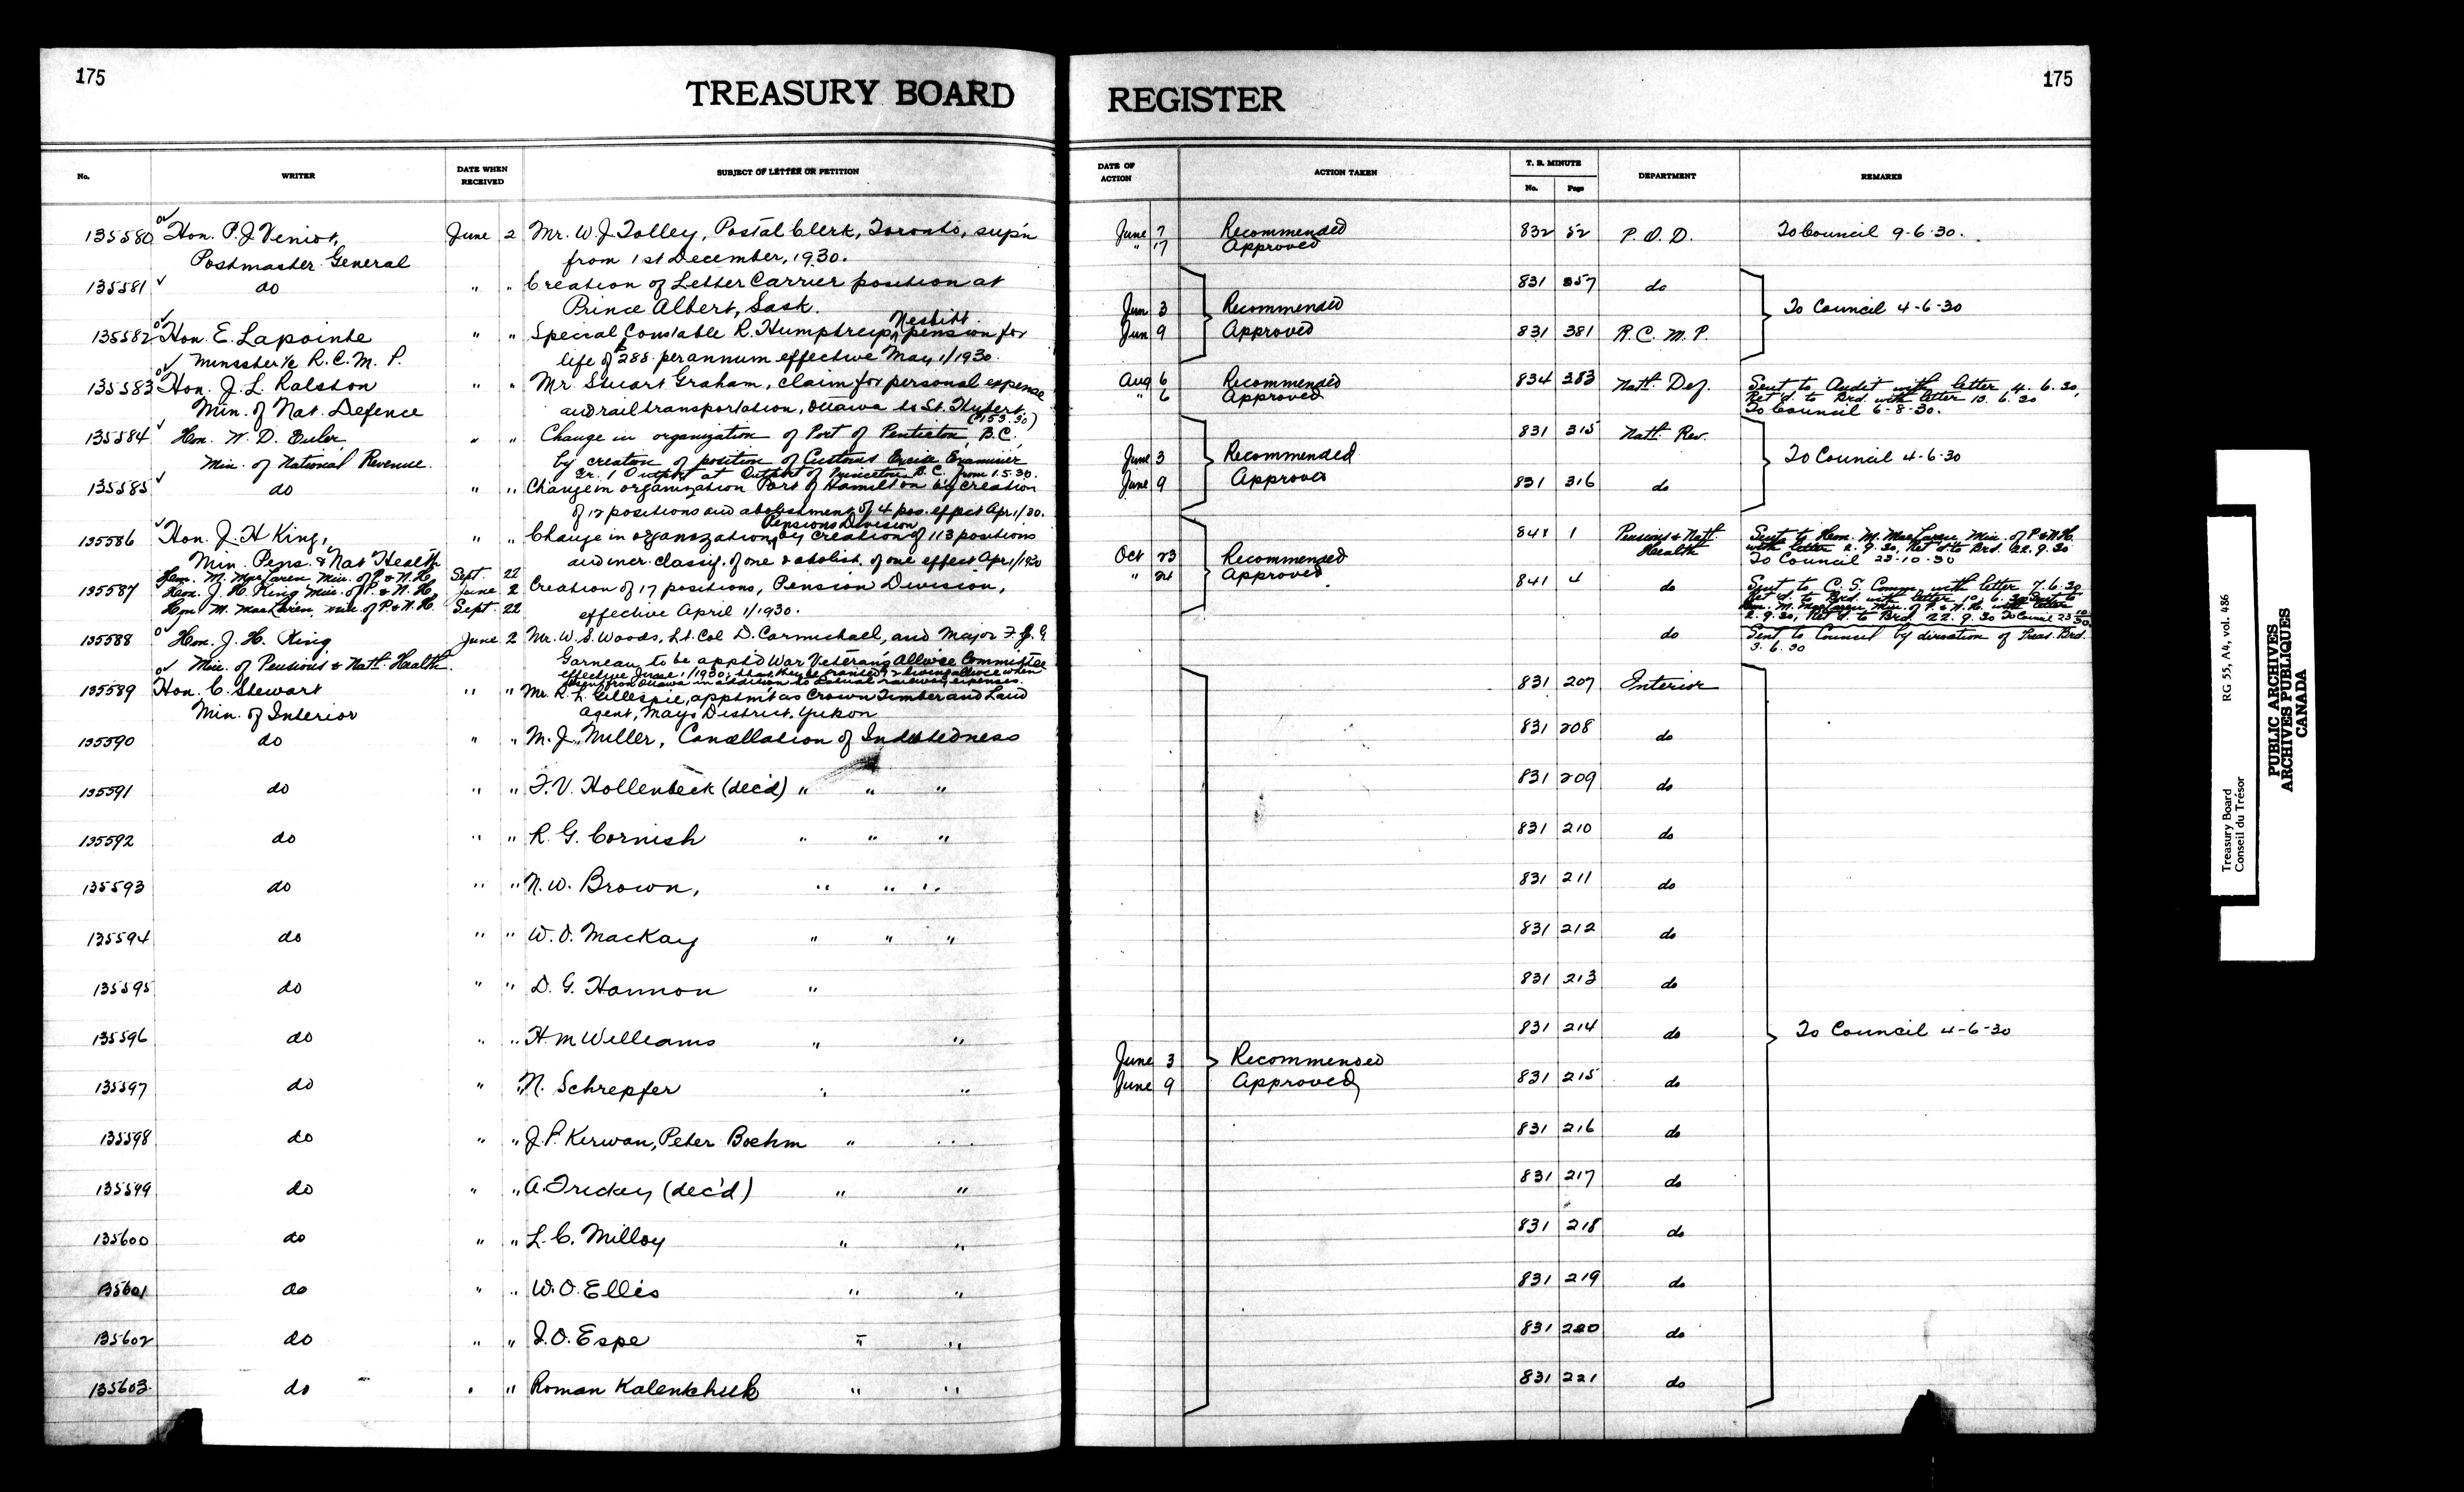 175
TREASURY BOARD REGISTER
175
No. WRITER DATE WHEN RECEIVED SUBJECT OF LETTER OR PETITION DATE OF ACTION ACTION TAKEN T. B. MINUTE No. Page DEPARTMENT REMARKS
135580 Hon. P. J. Veniot, June 2 Mr. W. J. Tolley, Postal Clerk, Toronto, sup'n June 7 Recommended 832 52 P. O. D. To Council 9-6-30.
Postmaster General from 1st December, 1930. " 17 Approved
135581 do " " Creation of Letter Carrier position at 831 357 do
Prince Albert, Sask. Jun 3 Recommended To Council 4-6-30
135582 Hon. E. Lapointe " " Special Constable R. Humphreys, Nesbitt. pension for Jun 9 Approved 831 381 R. C. M. P.
Minister i/c R. C. M. P. life of $288. per annum effective May 1/1930.
135583 Hon. J. L. Ralston " " Mr. Stuart Graham, claim for personal expense Aug 6 Recommended 834 383 Natl. Def. Sent to Audit with letter 4. 6. 30,
Min. of Nat. Defence and rail transportation, Ottawa to St. Hubert. " 6 Approved Ret'd. to Brd. with letter 13. 6. 30
($153.30) To Council 6-8-30.
135584 Hon. W. D. Euler, " " Change in organization of Port of Penticton, B.C., 831 315 Natl. Rev.
Min. of National Revenue. by creation of position of Customs Excise Examiner June 3 Recommended To Council 4-6-30
Gr. 1 Outport at Outport of Princeton B.C. from 1.5.30.
135585 do " " Change in organization Port of Hamilton by creation June 9 Approved 831 316 do
of 12 positions and abolishment of 4 pos. effect Apr 1/30.
135586 Hon. J. H King, " " Change in organization, Pensions Division by creation of 113 positions 841 1 Pensions & Natl. Health Sent to Hon. M. MacLaren Min. of P & N.H.
Min. Pens. & Nat Health and incr. classif. of one & abolish. of one effect Apr 1/1930 Oct 23 Recommended with letter 2. 9. 30, Ret'd to Brd. 22. 9. 30
Hon. M. MacLaren Min. of P. & N. H. Sept. 22 " 24 Approved To Council 23-10-30
135587 Hon. J. H. King Min. of P. & N. H. June 2 Creation of 17 positions, Pension Division, 841 4 do Sent to C. S. Comm. with letter 7. 6. 30
Hon. M. MacLaren, min. of P & N. H. Sept. 22 effective April 1/1930. Ret'd. to Brd. with letter 10. 6. 30 Sent to
Hon. M. MacLaren Min. of P. & N. H. with letter
2. 9. 30, Ret'd. to Brd. 22. 9. 30 To Council 23/10/30.
135588 Hon. J. H. King June 2 Mr. W. S. Woods, Lt. Col D. Carmichael, and Major F. J. G. do Sent to Council by direction of Treas. Brd.
Min. of Pensions & Natl. Health. Garneau to be app'td War Veteran's Allwce Committee 3. 6. 30
effective June 1/1930; that they be granted living allwce when
absent from Ottawa in addition to actual railway expenses.
135589 Hon. C. Stewart " " Mr. R. L. Gillespie, appt'm't as Crown Timber and Land 831 207 Interior
Min. of Interior Agent, Mayo District, Yukon
135590 do " " M. J. Miller, Cancellation of Indebtedness 831 208 do
135591 do " " F. V. Hollenbeck (dec'd) " " " 831 209 do
135592 do " " R. G. Cornish " " " 831 210 do
135593 do " " N. W. Brown, " " " 831 211 do
135594 do " " W. O. MacKay " " " 831 212 do
135595 do " " D. G. Hannon " 831 213 do
135596 do " " H. M Williams " " 831 214 do To Council 4-6-30
June 3 Recommended
135597 do " " N. Schrepfer " " June 9 Approved 831 215 do
135598 do " " J. P. Kerwan, Peter Boehm " " 831 216 do
135599 do " " A. Trickey (dec'd) " " 831 217 do
135600 do " " L. C. Milloy " " 831 218 do
135601 do " " W. O. Ellis " " 831 219 do
135602 do " " I. O. Espe " " 831 220 do
135603 do " " Roman Kalenchuk " " 831 221 do
Treasury Board RG 55, A4, vol. 486
Conseil du Trésor
PUBLIC ARCHIVES
ARCHIVES PUBLIQUES
CANADA